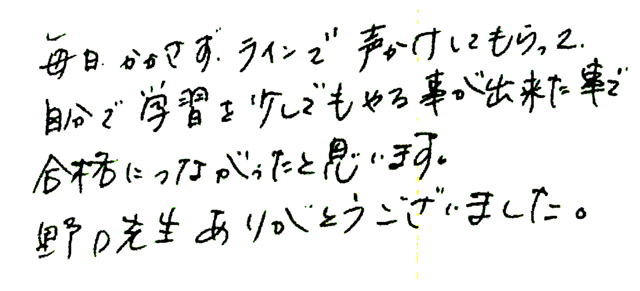 毎日かかさず、ラインで声かけしてもらって、
自分で学習を少しでもやる事が出来た事で
合格につながったと思います。
野口先生ありがとうございました。